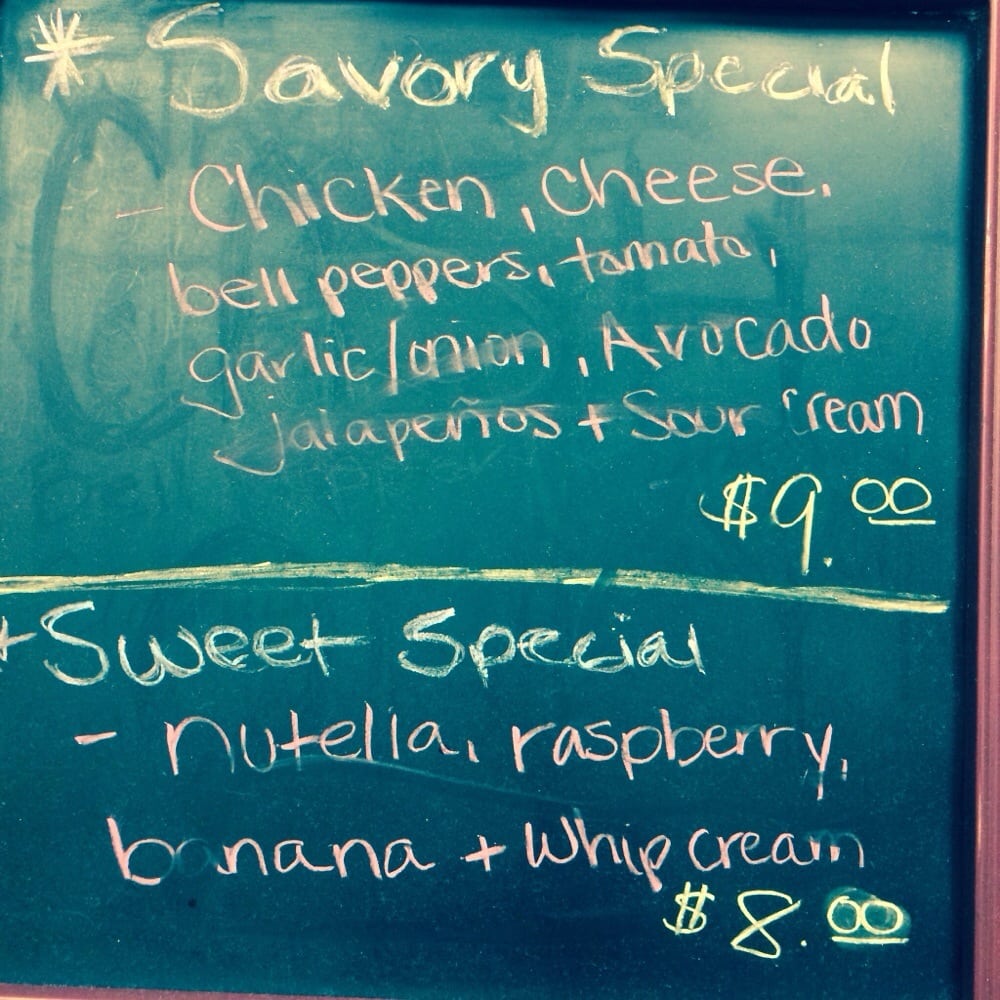 * Savory Special
- Chicken, cheese,
bell peppers, tomato,
garlic/onion, Avocado
jalapeños + Sour Cream
$9.00
+ Sweet Special
- nutella, raspberry,
banana + Whip cream
$8.00